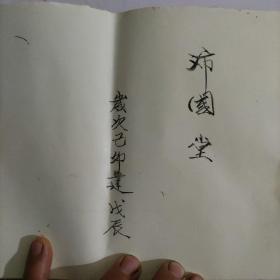 沛國堂
歲次己卯建戊辰